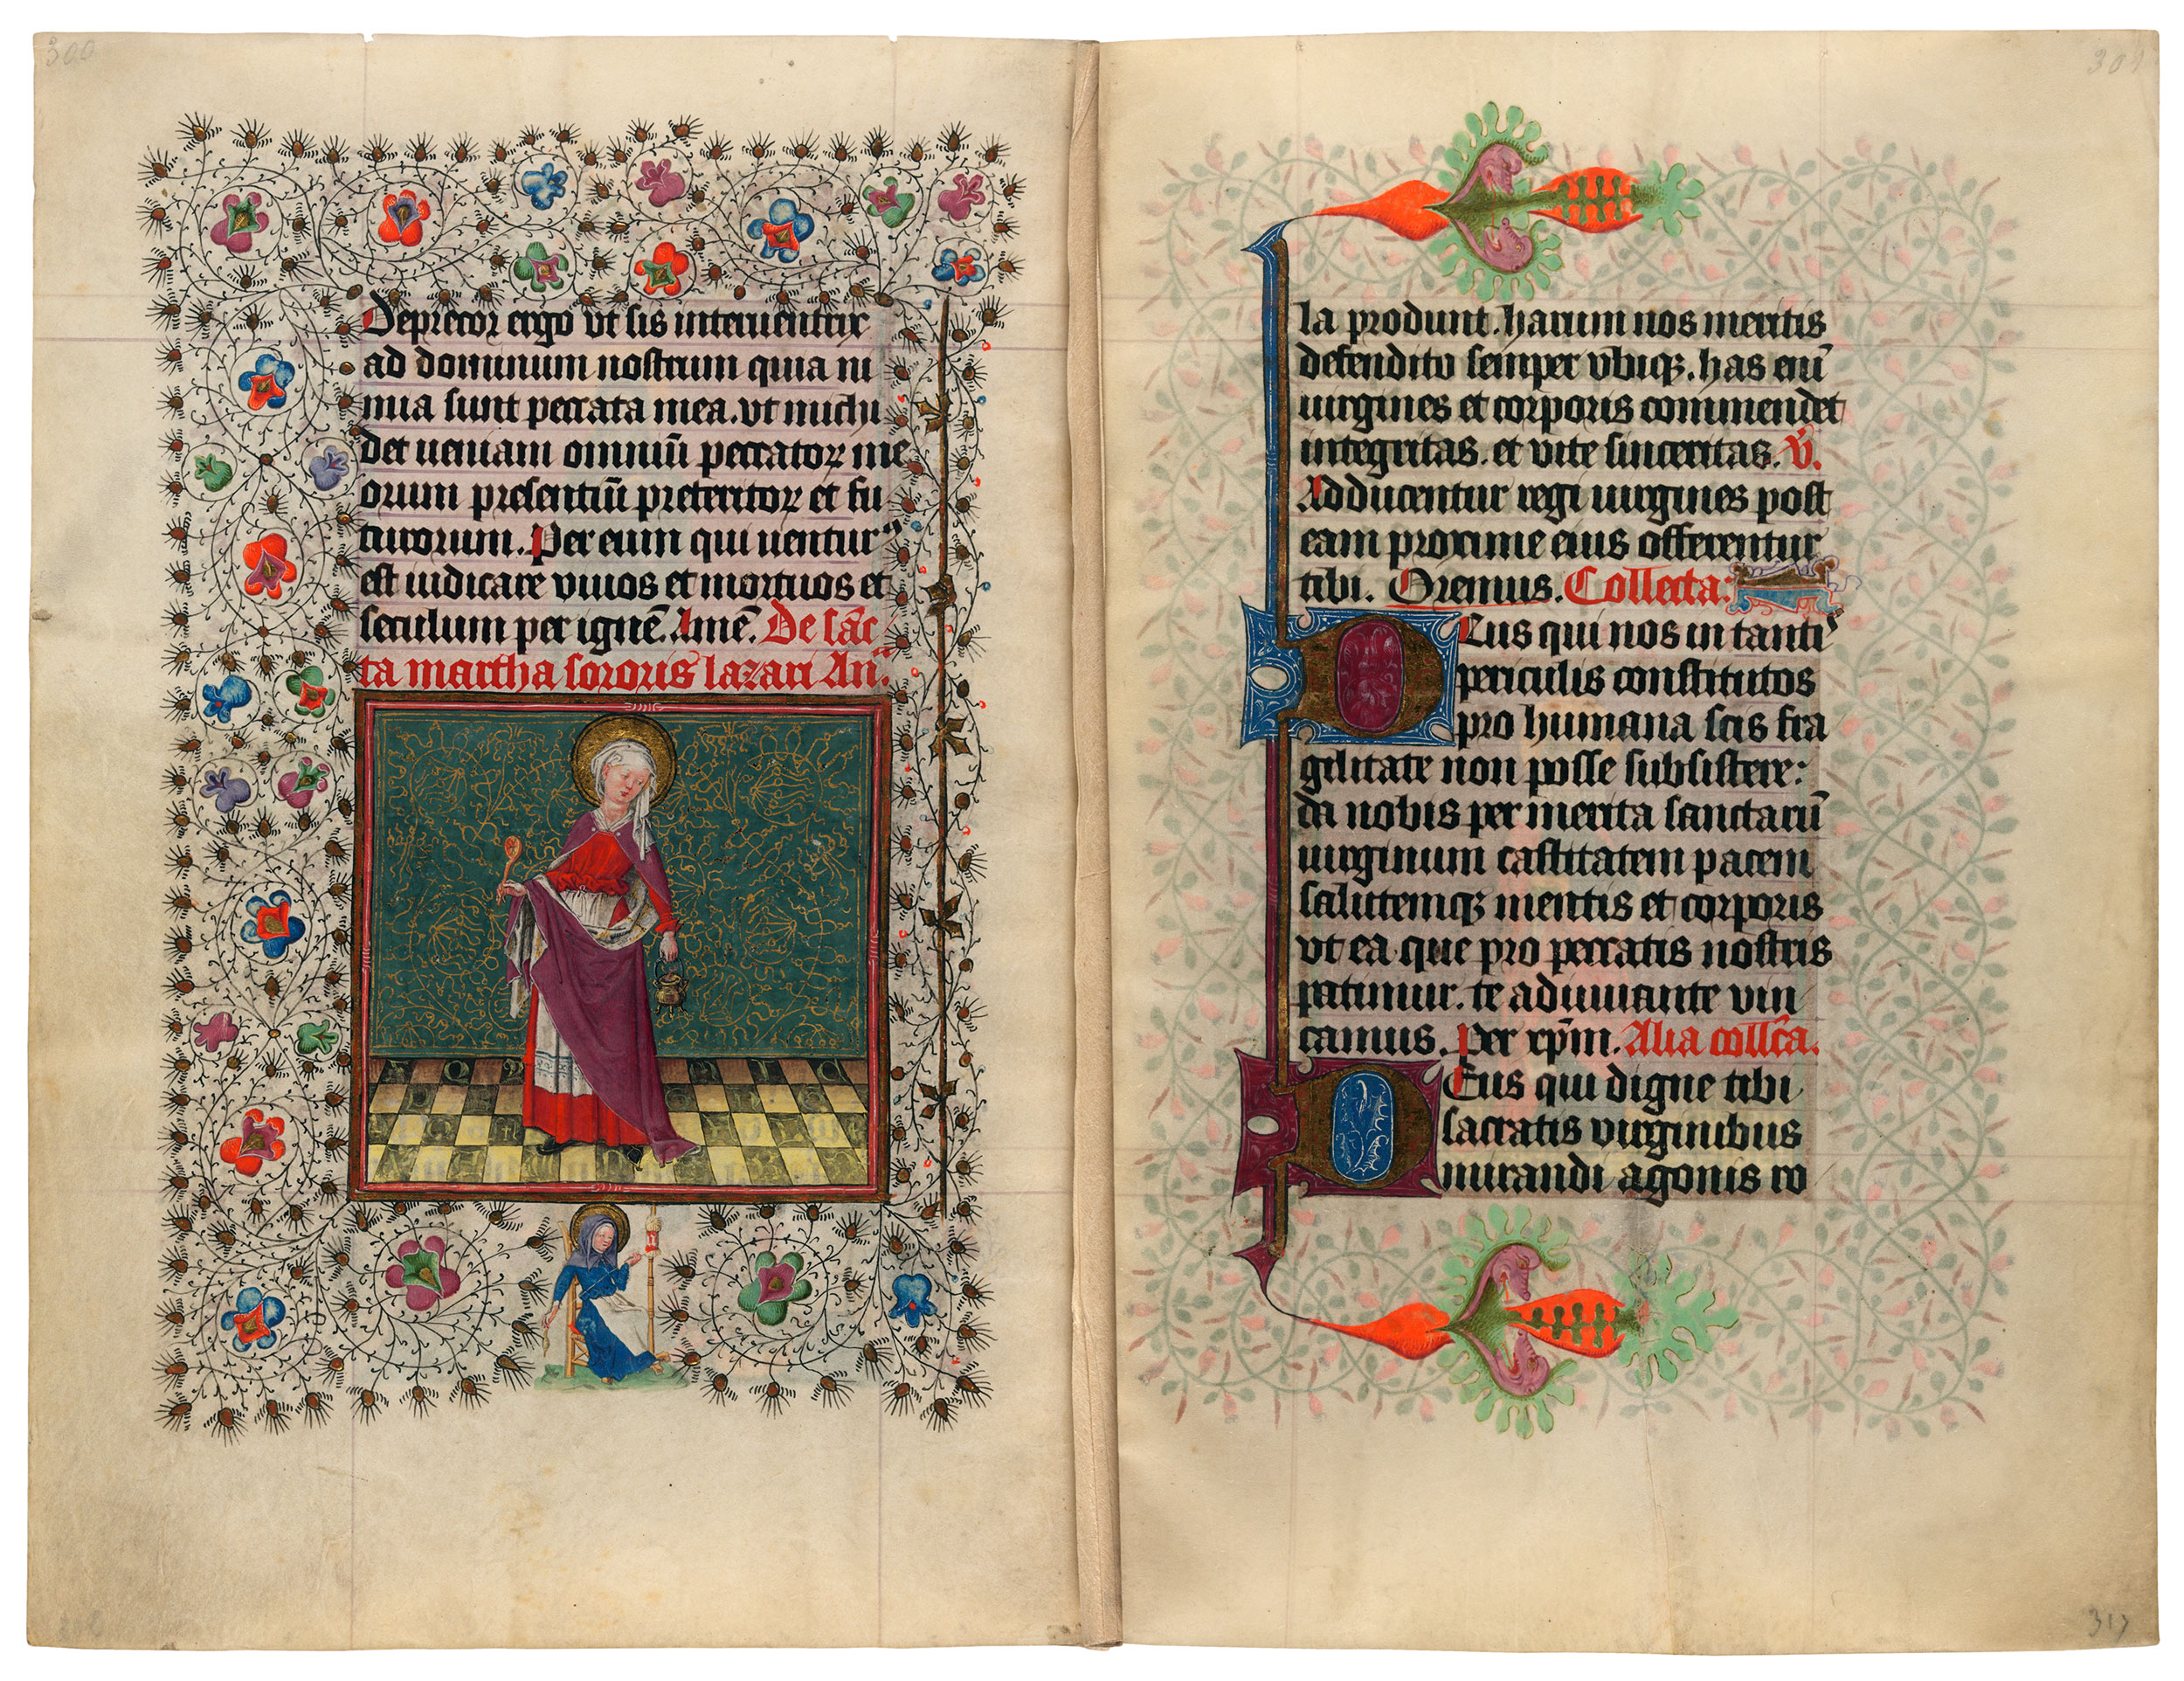 300
Deprecor ergo vt sis interuentrix
ad dominum nostrum quia ni
mia sunt peccata mea. vt michi
det ueniam omniū peccatoꝝ me
orum presentiū preteritoꝝ et fu
turorum. Per eum qui uentur⁹
est iudicare viuos et mortuos et
seculum per ignē. Amē. De sāc
ta martha sororis lazari An̄.
301
la produnt. harum nos meritis
defendito semper vbiqꝫ. has eni̅
uirgines et corporis commendet
integritas. et vite sinceritas. V̄.
Adducentur regi uirgines post
eam proxime eius offerentur
tibi. Oremus. Collecta:
Deus qui nos in tantis
periculis constitutos
pro humana scis fra
gilitate non posse subsistere:
da nobis per merita sanctarū
uirginum castitatem pacem
salutemqꝫ mentis et corporis
vt ea que pro peccatis nostris
patimur. te adiuuante vin
camus. Per xp̄m. Alia collc̄a.
Deus qui digne tibi
sacratis virginibus
mirandi agonis ro
317